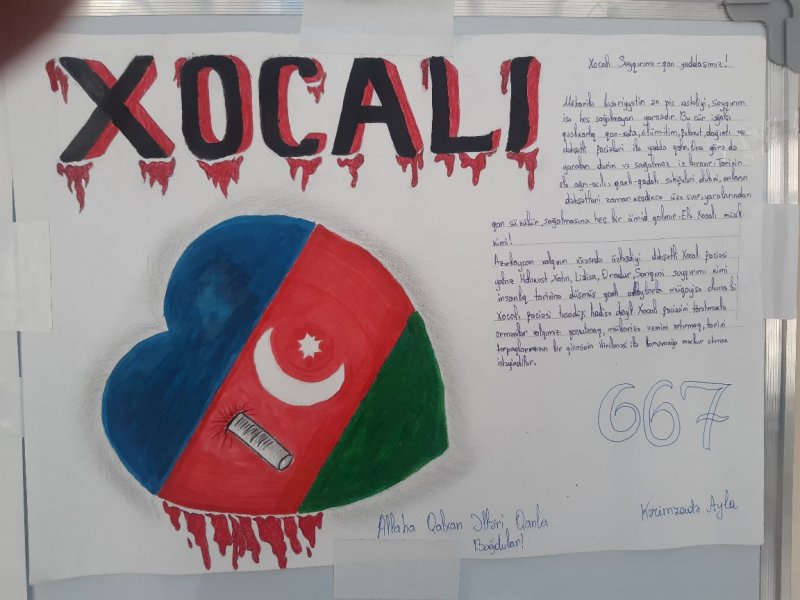 XOCALI
Xocalı Soyqırımı-qan yaddaşımız!
Müharibə bəşəriyyətin ən pis xəstəliyi, soyqırım
isə heç sağalmayan yarasıdır. Bu cür işğala
qan-qada, ölüm-itim, fəlakət, dağıntı və
dəhşətli faciələri ilə yadda qalır. Ona görə də
yaraları dərin və sağalmaz iz buraxır. Tarixin
elə ağrı-acılı, qanlı-qadalı səhifələri olubki, onların
dəhşətləri zaman keçdikcə üzə çıxır, yaralarından
qan süzülür, sağalmasına heç bir ümid qalmır. Elə Xocalı müsi
kimi!
Azərbaycan xalqının üzləşdiyi dəhşətli Xocalı faciəsi
yalnız Holokost, Xatın, Lidisa, Oradur, Sonqimi soyqırımı kimi
insanlıq tarixinə düşmüş qanlı müqayisə oluna bi
Xocalı faciəsi təsadüfi hadisə deyil. Xocalı faciəsini törətməklə
ermənilər xalqımızı qorxutmaq, mübarizə əzmini qırmaq, tarixi
torpaqlarımızın bir qisminin itirilməsi ilə barışmağa məcbur etmək
istəyirdilər.
667
Allaha Qalxan Əlləri Qanla
Boğdular!
Kərimzadə Ayla